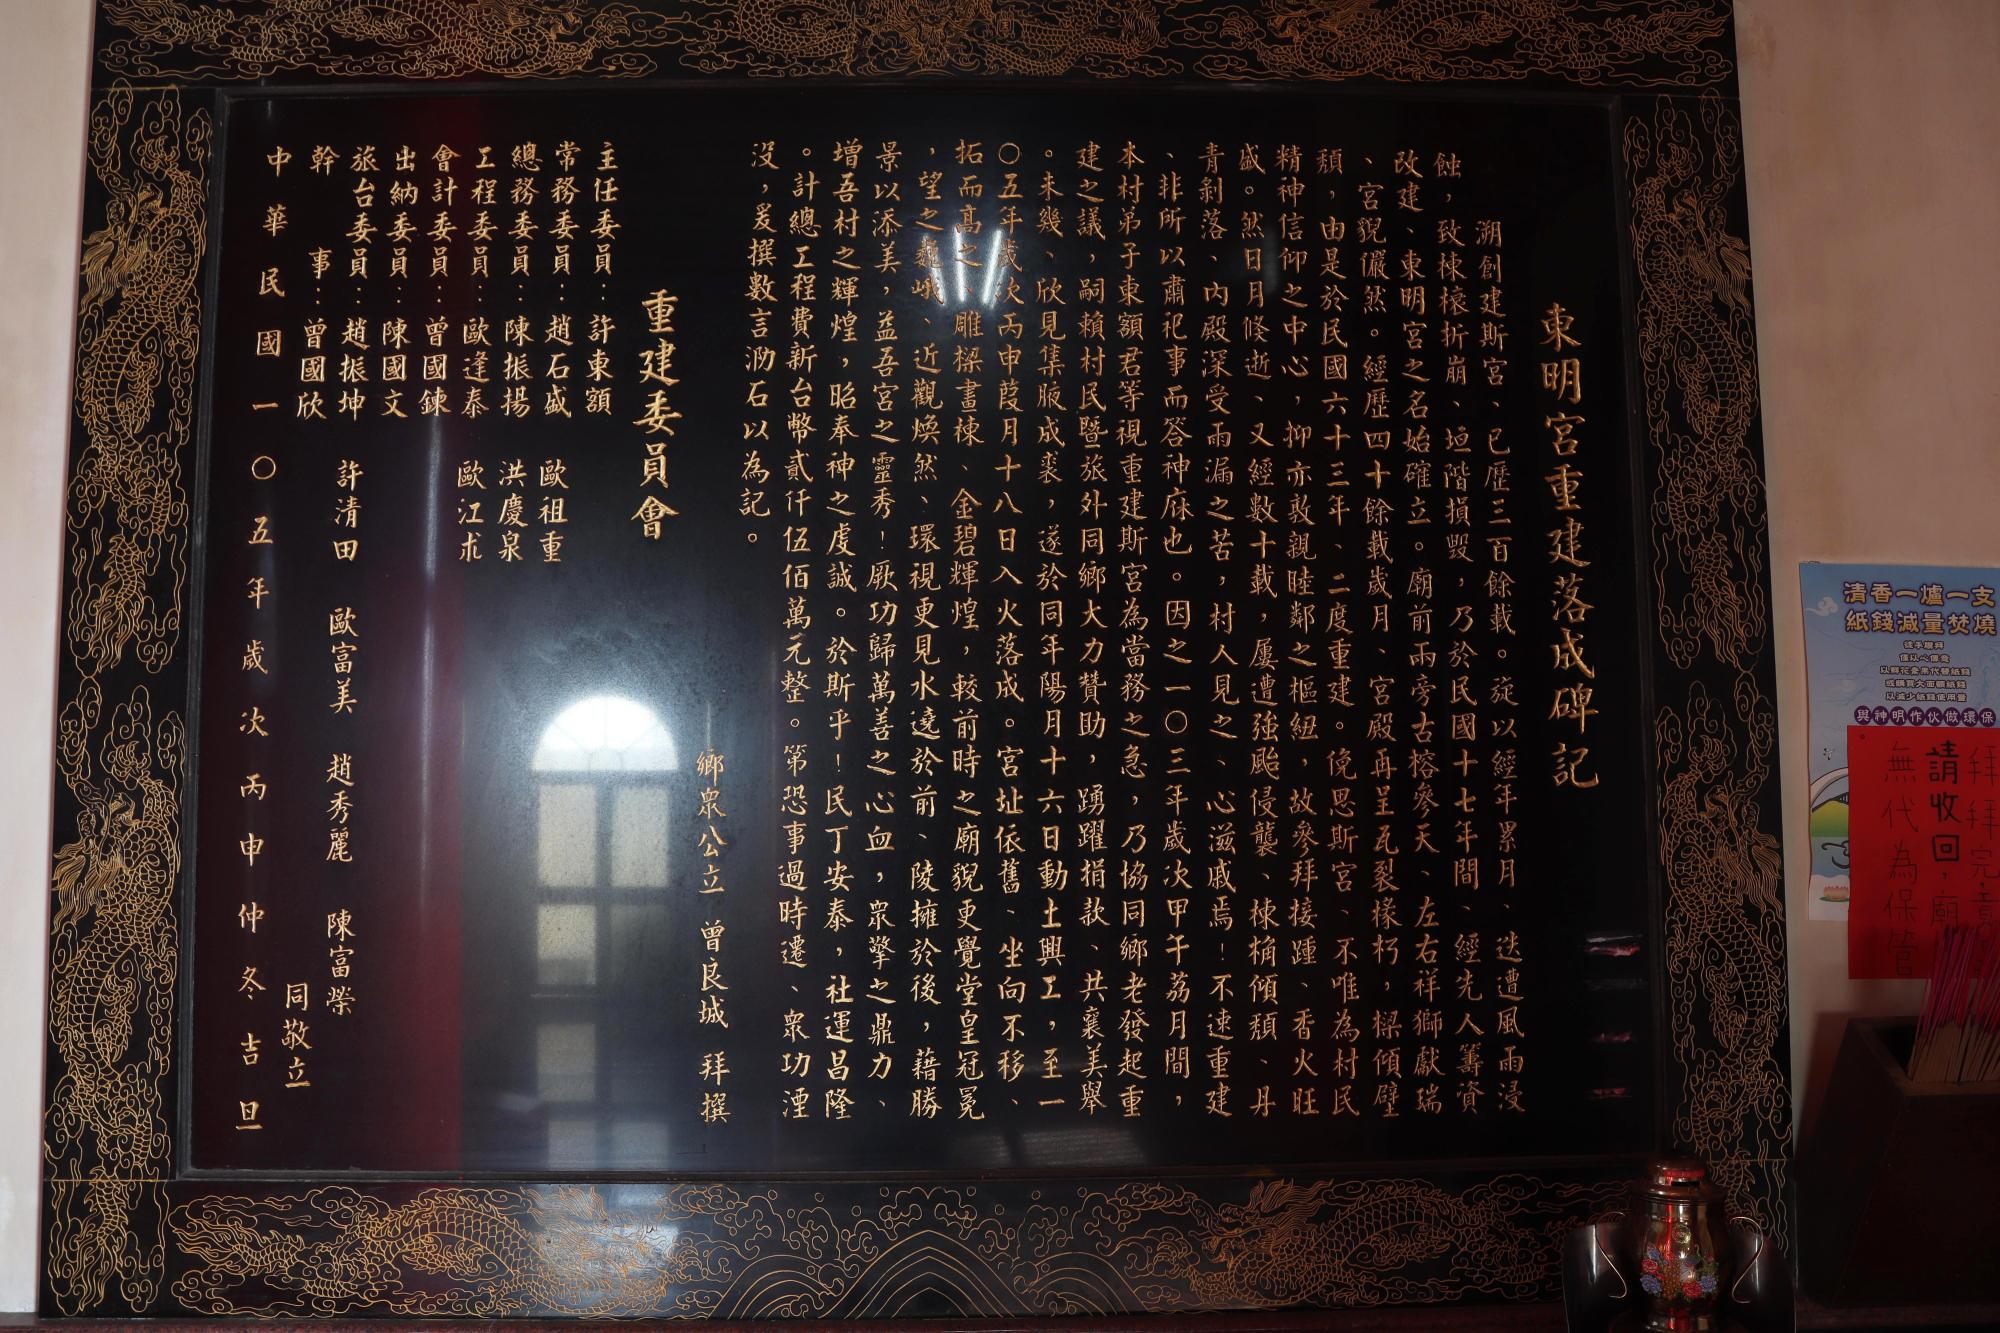 東明宮重建落成碑記
溯創建斯宮、已歷三百餘載。旋以經年累月、迭遭風雨浸
蝕，致棟榱折崩、垣階損毀，乃於民國十七年間、經先人籌資
改建、東明宮之名始確立。廟前兩旁古榕參天、左右祥獅獻瑞
、宮貌儼然。經歷四十餘載歲月、宮殿再呈瓦裂椽朽，樑傾壁
頹，由是於民國六十三年、二度重建。俛思斯宮、不唯為村民
精神信仰之中心，抑亦敦親睦鄰之樞紐，故參拜接踵、香火旺
盛。然日月條逝、又經數十載，屢遭強颱侵襲、棟桷傾頹、丹
青剝落、內殿深受雨漏之苦，村人見之、心滋戚焉！不速重建
、非所以肅祀事而答神庥也。因之一〇三年歲次甲午荔月間，
本村弟子東額君等視重建斯宮為當務之急，乃協同鄉老發起重
建之議，嗣賴村民暨旅外同鄉大力贊助，踴躍捐款、共襄美舉
。未幾、欣見集腋成裘，遂於同年陽月十六日動土興工，至一
〇五年歲次丙申葭月十八日入火落成。宮址依舊、坐向不移、
拓而高之、雕樑畫棟、金碧輝煌，較前時之廟貌更覺堂皇冠冕
，望之巍峨、近觀煥然、環視更見水遶於前、陵擁於後，藉勝
景以添美，益吾宮之靈秀！厥功歸萬善之心血，眾擎之鼎力、
增吾村之輝煌，昭奉神之虔誠。於斯乎！民丁安泰，社運昌隆
。計總工程費新台幣貳仟伍佰萬元整。第恐事過時遷、眾功湮
沒，爰撰數言泐石以為記。
鄉眾公立　曾良城　拜撰
重建委員會
主任委員：許東額
常務委員：趙石盛　歐祖重
總務委員：陳振揚　洪慶泉
工程委員：歐逢泰　歐江朮
會計委員：曾國鍊
出納委員：陳國文
旅台委員：趙振坤　許清田　歐富美　趙秀麗　陳富榮
幹事：曾國欣
同敬立
中華民國一〇五年歲次丙申仲冬吉旦
清香一爐一支
紙錢減量焚燒
徒手膜拜
僅以心傳意
以鮮花素果代替紙錢
或購買大面額紙錢
以減少紙錢使用量
與神明作伙做環保
拜拜完
請收回，廟
無代為保管